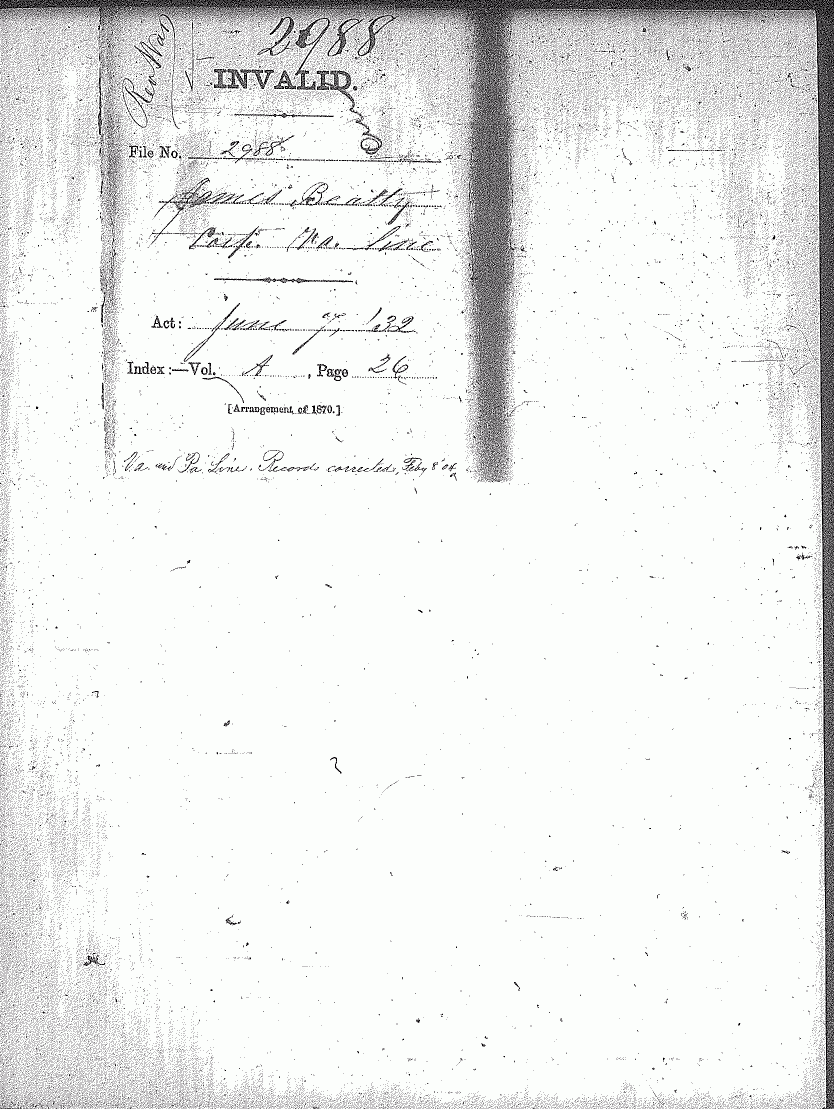 2988
Rev War
INVALID.
File No. 2988
James Beatty
Corp. Va. line
Act: June 7, '32
Index:—Vol. A, Page 26
[Arrangement of 1870.]
Va. and Pa. Line. Records corrected, Feby 8 '04